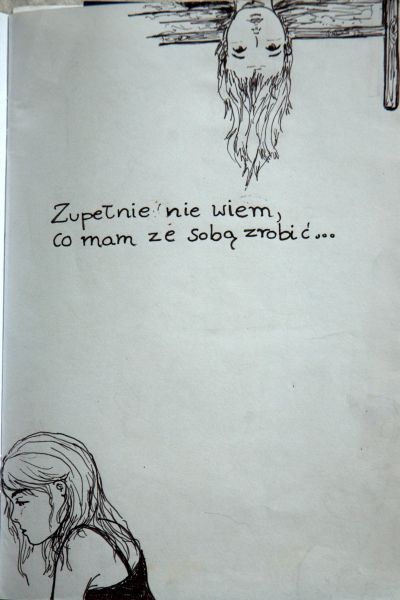 Zupełnie nie wiem,
co mam ze sobą zrobić...